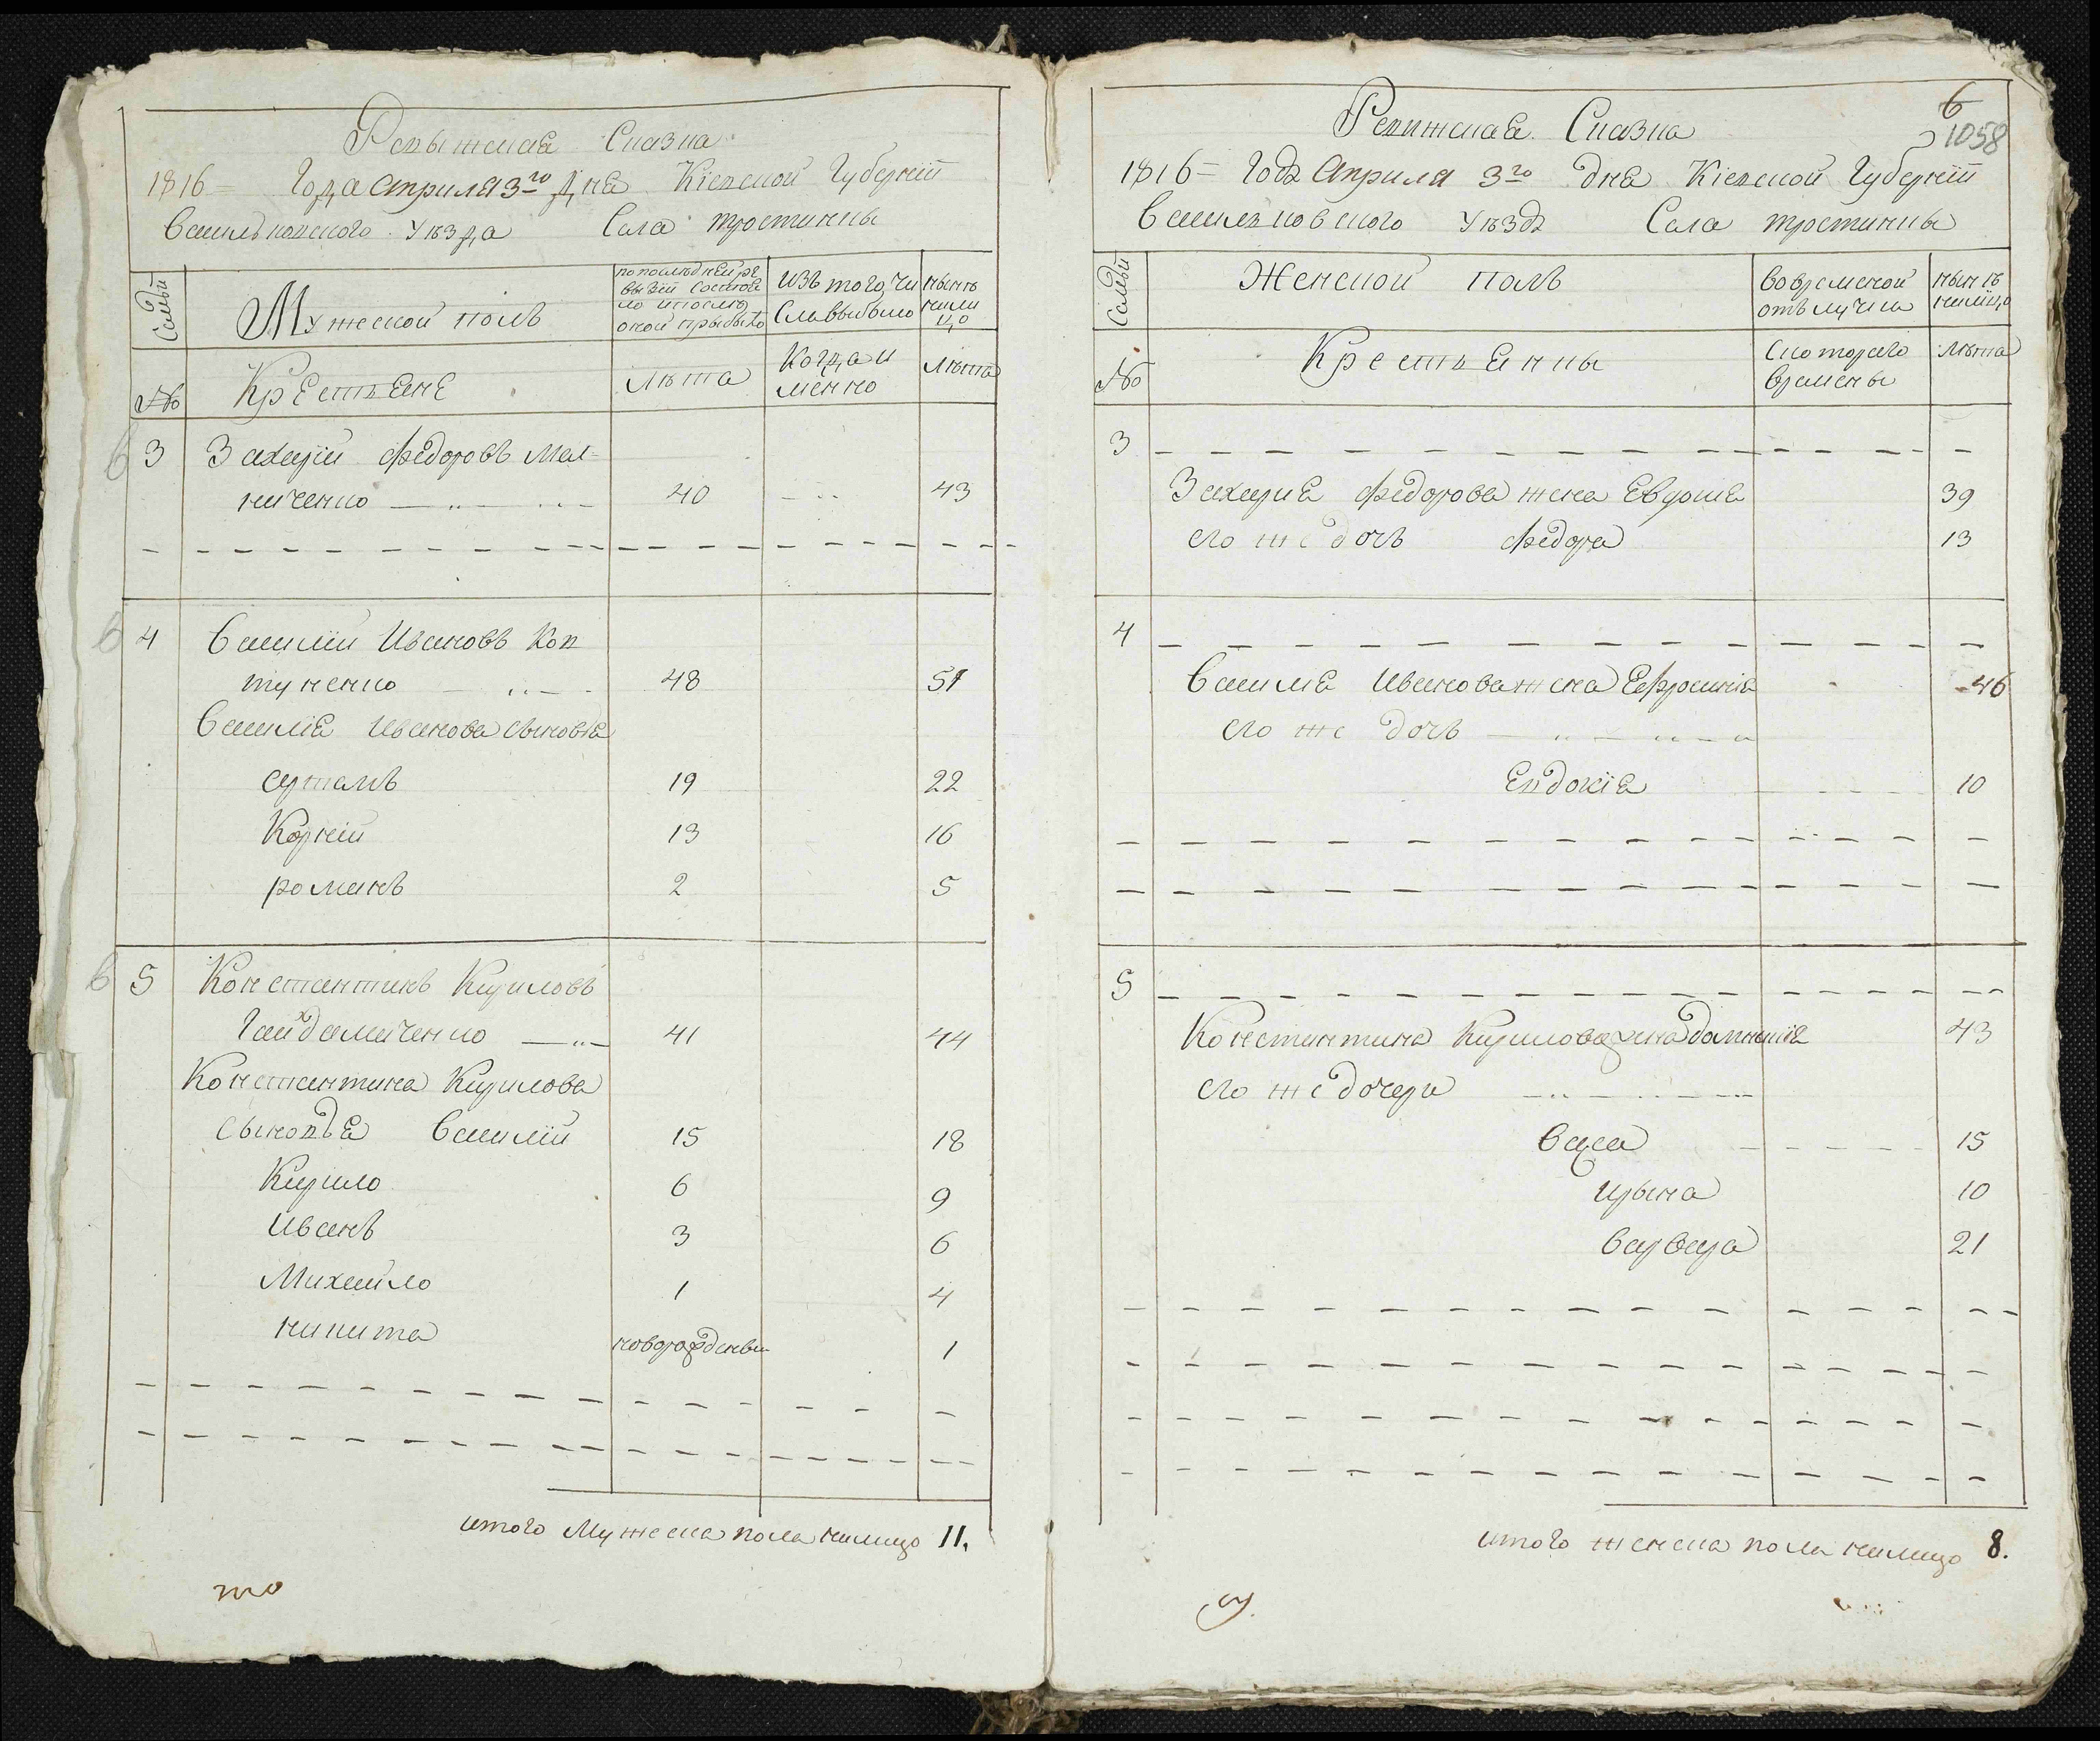 Ревыжская Сказка
1816 = Года априля 3го Дня Кіевской Губерніи
Василъковского Уѣзда Села Тростинки
Семьи
Мужеской полъ
по послѣдней ре
вызіи состоя
ло и послѣ
оной прыбыло
изъ того чи
сла выбыло
нынѣ
нали
цо
№
Крестьяне
лѣта
когда и
менно
лѣта
3 Захарій Федоровъ Мел=
ниченко 40 43
4 Василій Ивановъ Ков
туненко 48 51
Василія Иванова сыновья
артемъ 19 22
Корній 13 16
романъ 2 5
5 Константинъ Кириловъ
Гайдамаченко 41 44
Константина Кирилова
сыновья Василій 15 18
Кирило 6 9
Иванъ 3 6
Михайло 1 4
никита новорожденый 1
итого Мужеска пола налицо 11.
то
6
1058
Ревижская Сказка
1816 = Года Априля 3го дня Кіевской Губерніи
Василковского Уѣзда Села Тростинки
Семьи
Женской полъ
во временой
отълучки
нынѣ
налицо
№
Крестьянки
с которого
времены
лѣта
3
Захария Федорова жена Евдокия 39
его же дочь Федора 13
4
Василия Иванова жена Ефросинія 46
его же дочь
Евдокія 10
5
Константина Кирилова жена домникия 43
его же дочери
васса 15
ирына 10
варвара 21
итого женска пола налицо 8.